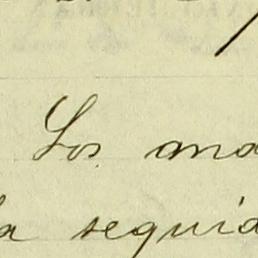 Los and
la seguid